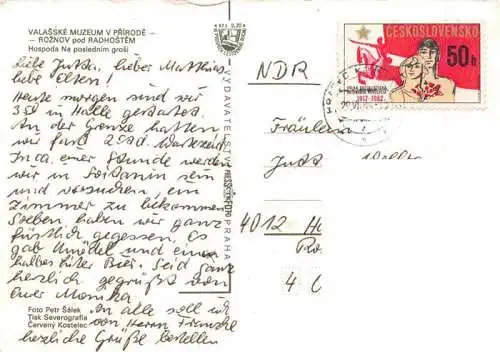 VALAŠSKÉ MUZEUM V PŘÍRODĚ -
- ROŽNOV pod RADHOŠTĚM
Hospoda Na posledním groši
Liebe Jutta, lieber Matthias
liebe Eltern!
Heute morgen sind wir
350 in Halle gestartet.
An der Grenze hatten
wir fast 2 Std. Wartezeit
In ca. einer Stunde werden
wir in sein
und versuchen, ein
Zimmer zu bekommen
Soeben haben wir ganz
fürstlich gegessen. Es
gab Knödel und einen
halben Liter Bier. Seid ganz
herzlich gegrüßt von
Eurer Monika
An alle soll ich
von Herrn Franke
herzliche Grüße bestellen
Foto Petr Šálek
Tisk Severografia
Červený Kostelec
VYDAVATELSTVÍ PRESSFOTO PRAHA
ČESKOSLOVENSKO
50 h
1917-1982
NDR
Fräulein
Jutt
4012 H